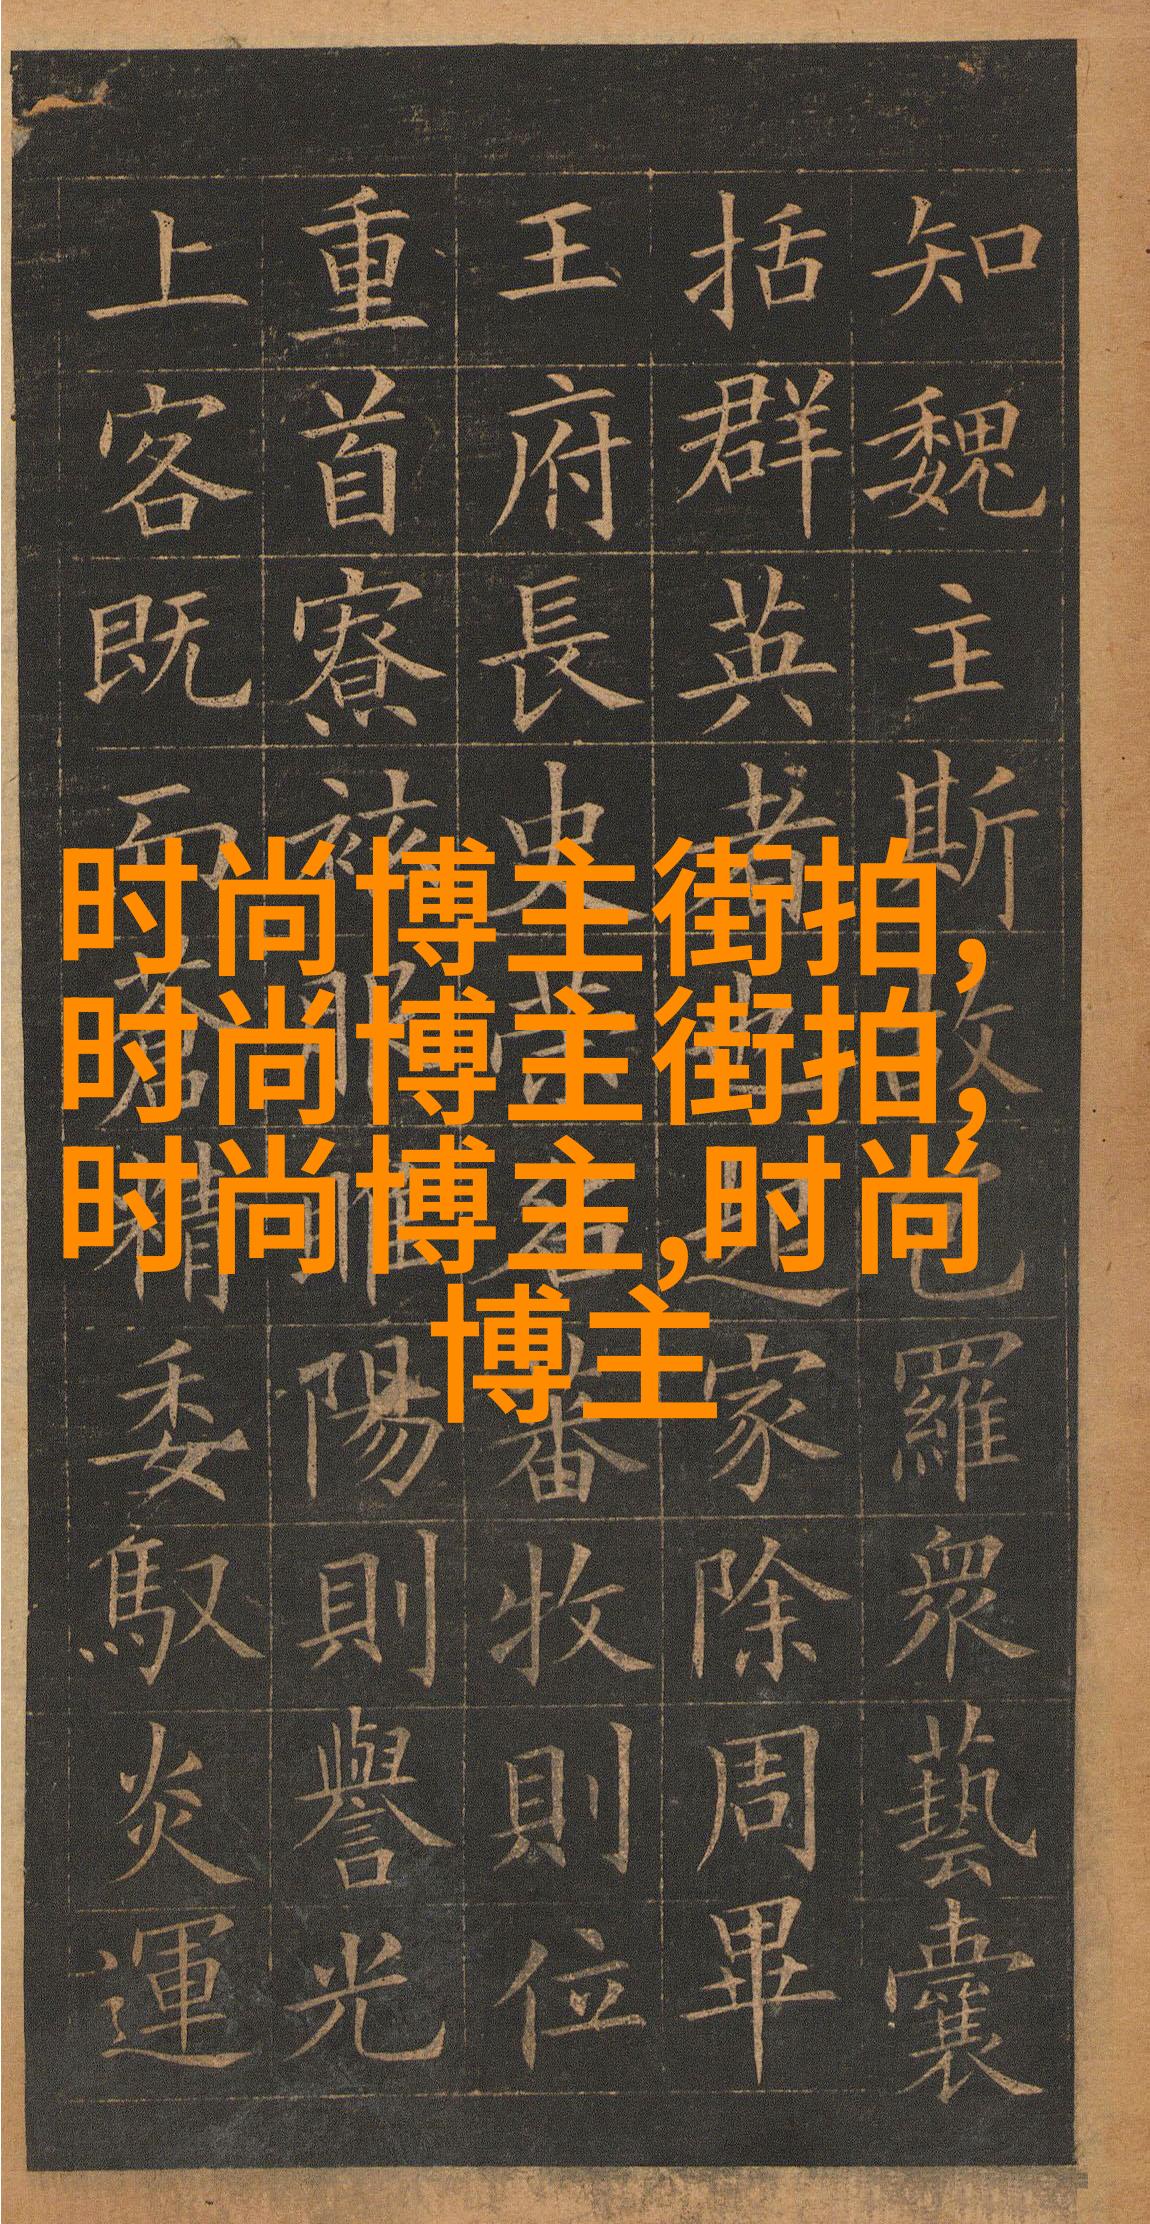 时尚博主街拍,
时尚博主街拍,
时尚博主,时尚
博主
知魏主斯故包羅衆藝囊
括群英者也起家除周畢
王府長史蕃牧則位
重首寮服陽則譽光
上客既而蒼精委馭炎運